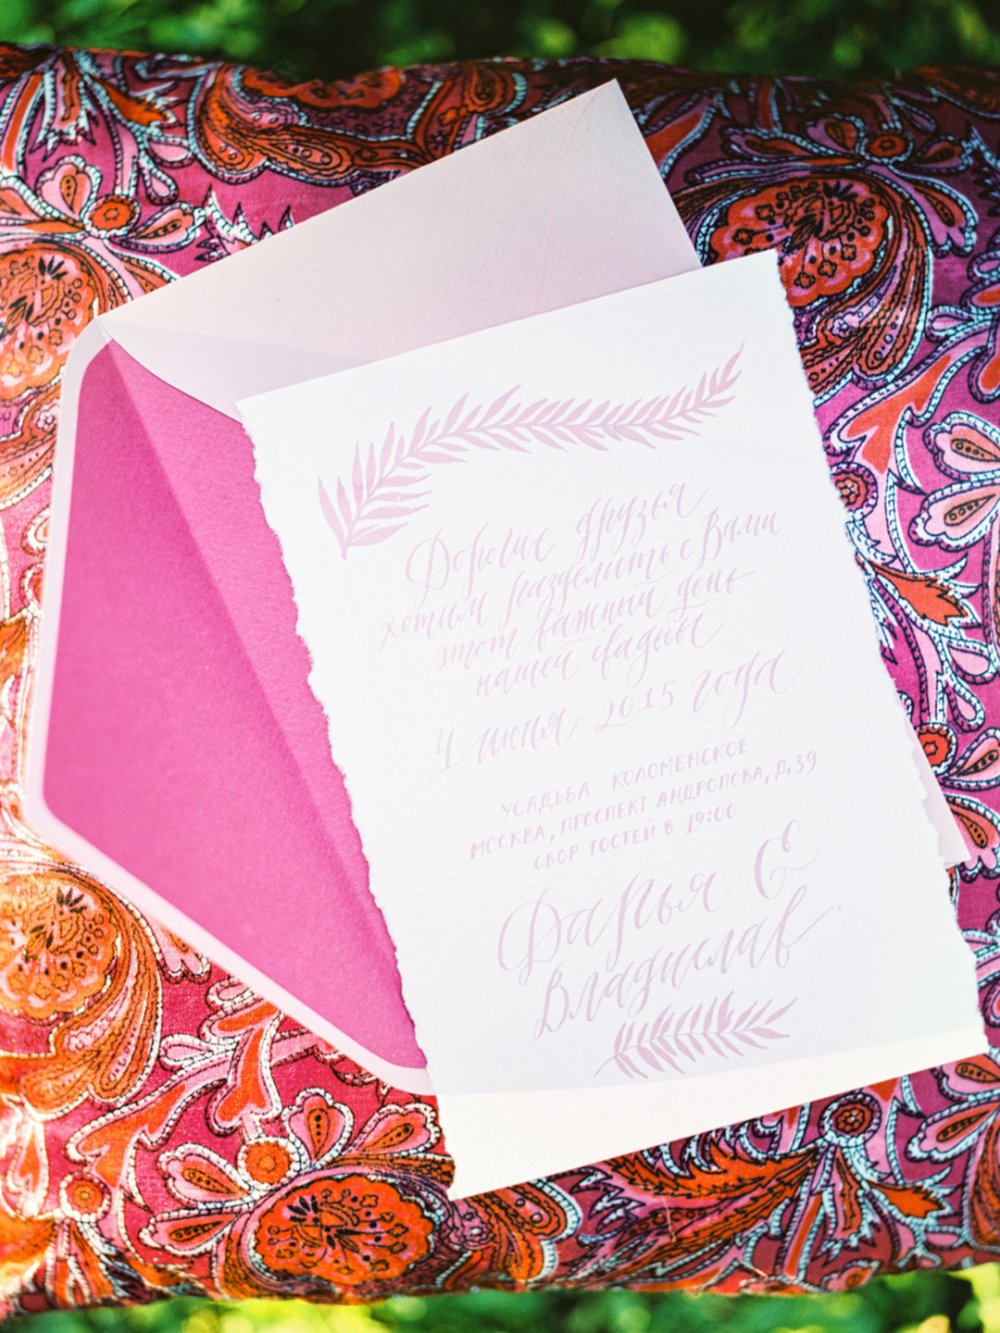 Дорогие друзья
хотим разделить с Вами
этот важный день
нашей свадьбы
4 июня 2015 года
УСАДЬБА КОЛОМЕНСКОЕ
МОСКВА, ПРОСПЕКТ АНДРОПОВА, Д,39
СБОР ГОСТЕЙ В
Дарья &
Владислав